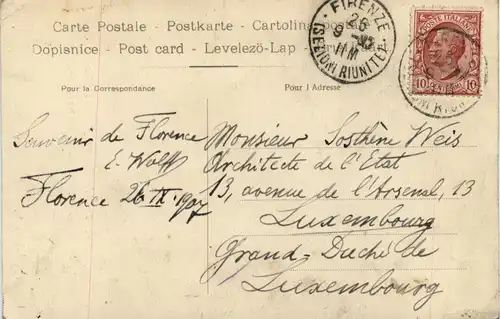 Carte Postale - Postkarte - Cartolina
Dopisnice - Post card - Levelező-Lap
FIRENZE
26
9 - 07
11 M
(SEZIONI RIUNITE)
POSTE ITALIANE
10 CENTESIMI 10
Pour la Correspondance
Pour l'Adresse
Souvenir de Florence
E. Wolff
Florence 26 IX. 1907
Monsieur Sosthène Weis
Architecte de l'Etat
13, avenue de l'Arsenal, 13
Luxembourg
Grand-Duché de
Luxembourg